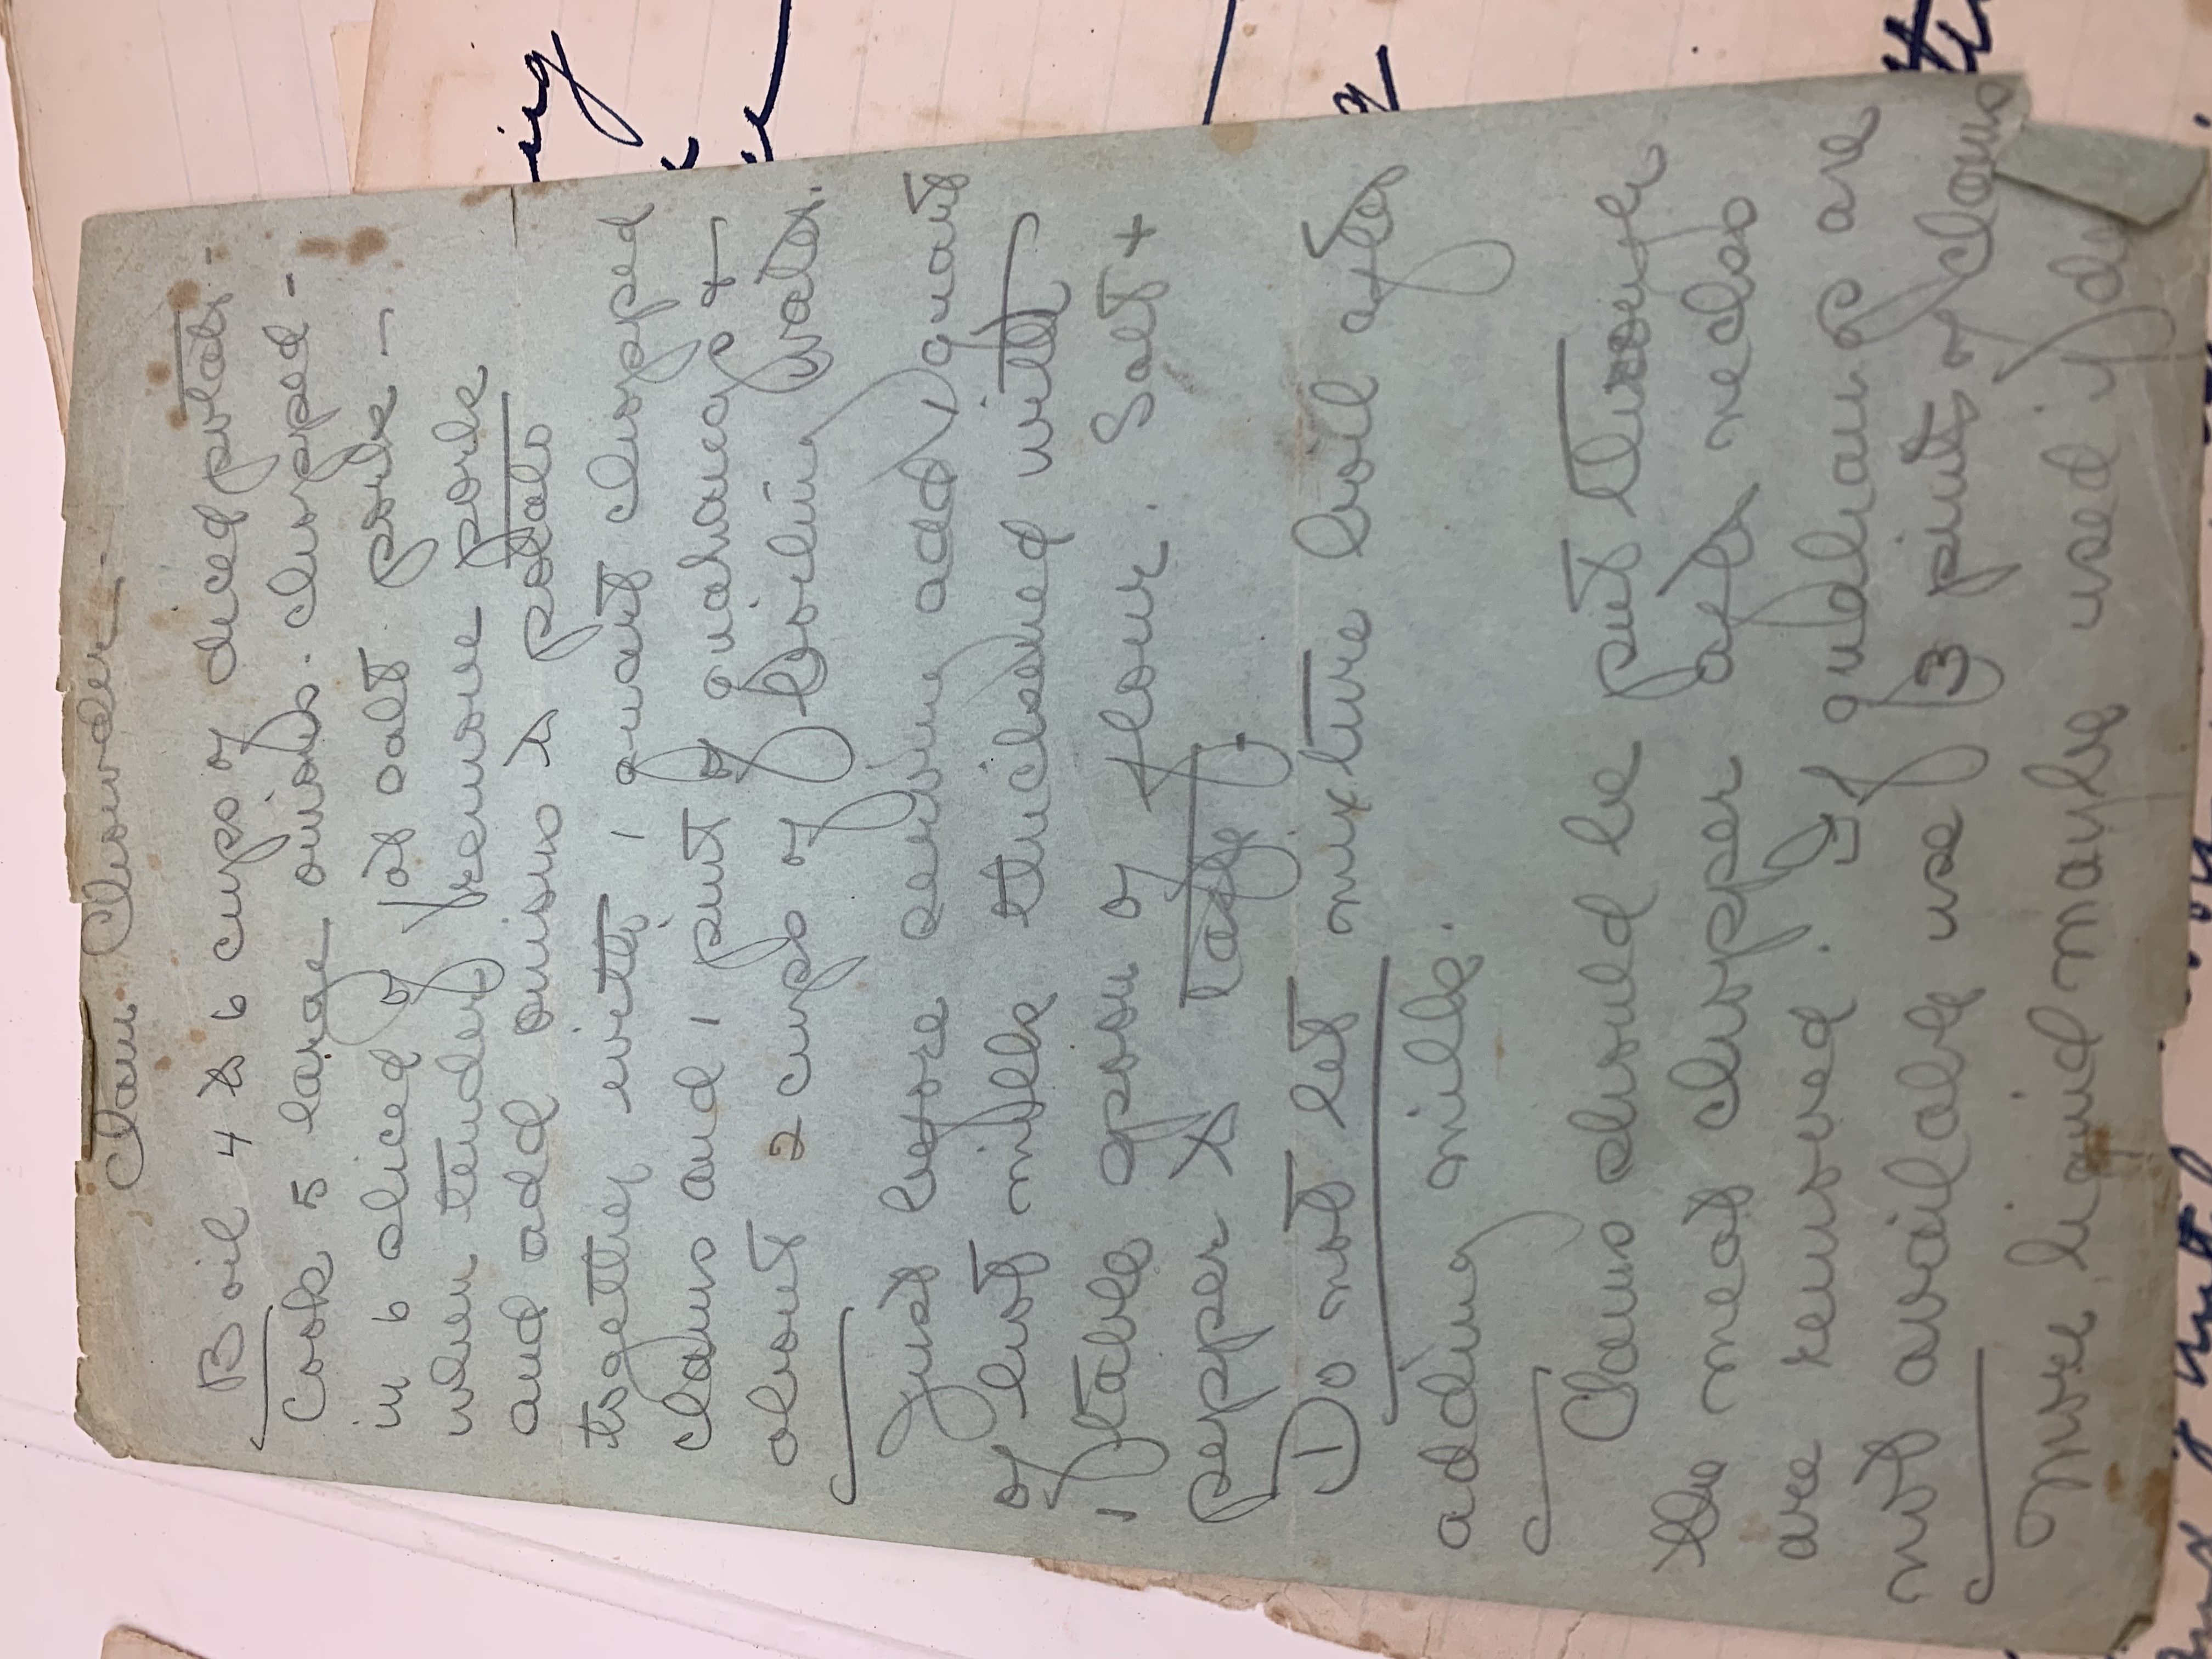 Clam Chowder -
Boil 4 to 6 cups of diced potato -
Cook 5 large onions - chopped -
in 6 sliced of fat salt pork -
when tender remove pork
and add onions to potato
together with 1 quart chopped
clams and 1 pint of quahaugs &
about 2 cups of boiling water.
Just before serving add 1 quart
of hot milk thickened with
1 table spoon of flour. Salt +
pepper to taste -
Do not let mixture boil after
adding milk.
Clams should be put through
the meat chopper after necks
are removed. If quahaugs are
not available use 3 pints of clams
More liquid maybe used if de
ing